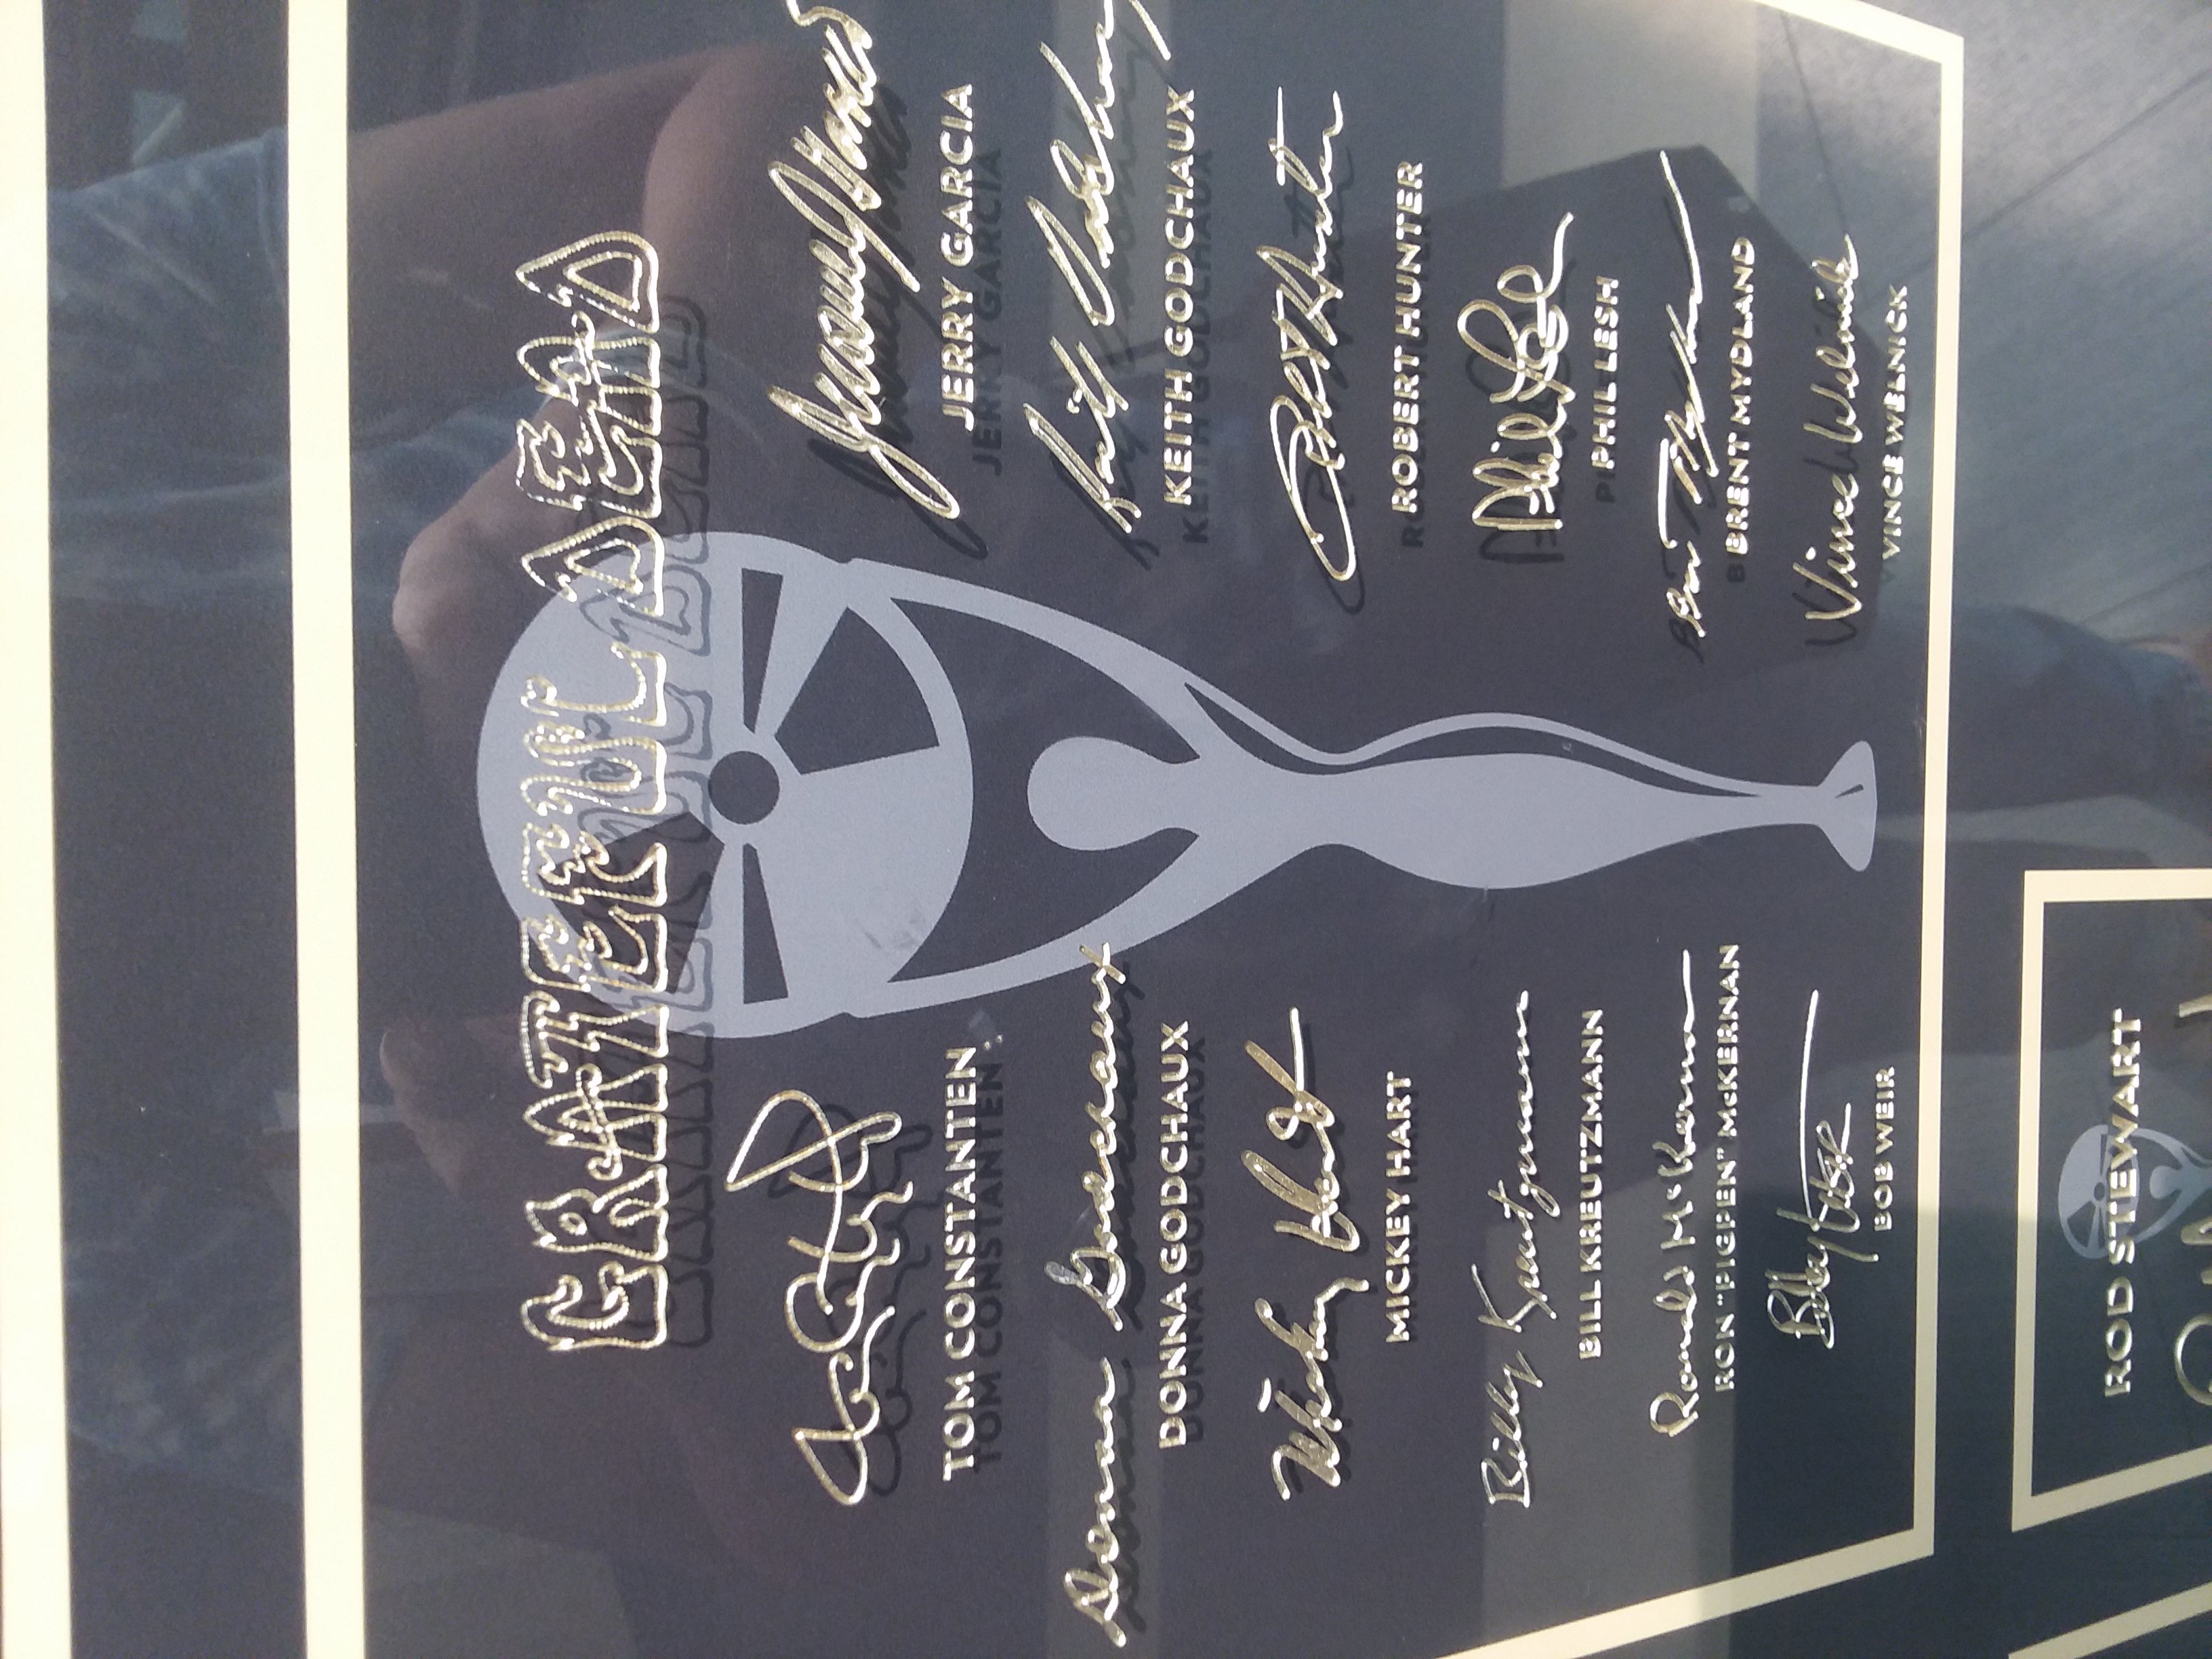 GRATEFUL DEAD
Tom Constanten
TOM CONSTANTEN
Donna Godchaux
DONNA GODCHAUX
Mickey Hart
MICKEY HART
Billy Kreutzmann
BILL KREUTZMANN
Ronald McKernan
RON "PIGPEN" McKERNAN
Bobby Weir
BOB WEIR
Jerry Garcia
JERRY GARCIA
Keith Godchaux
KEITH GODCHAUX
Robt Hunter
ROBERT HUNTER
Phil Lesh
PHIL LESH
Brent Mydland
BRENT MYDLAND
Vince Welnick
VINCE WELNICK
ROD STEWART